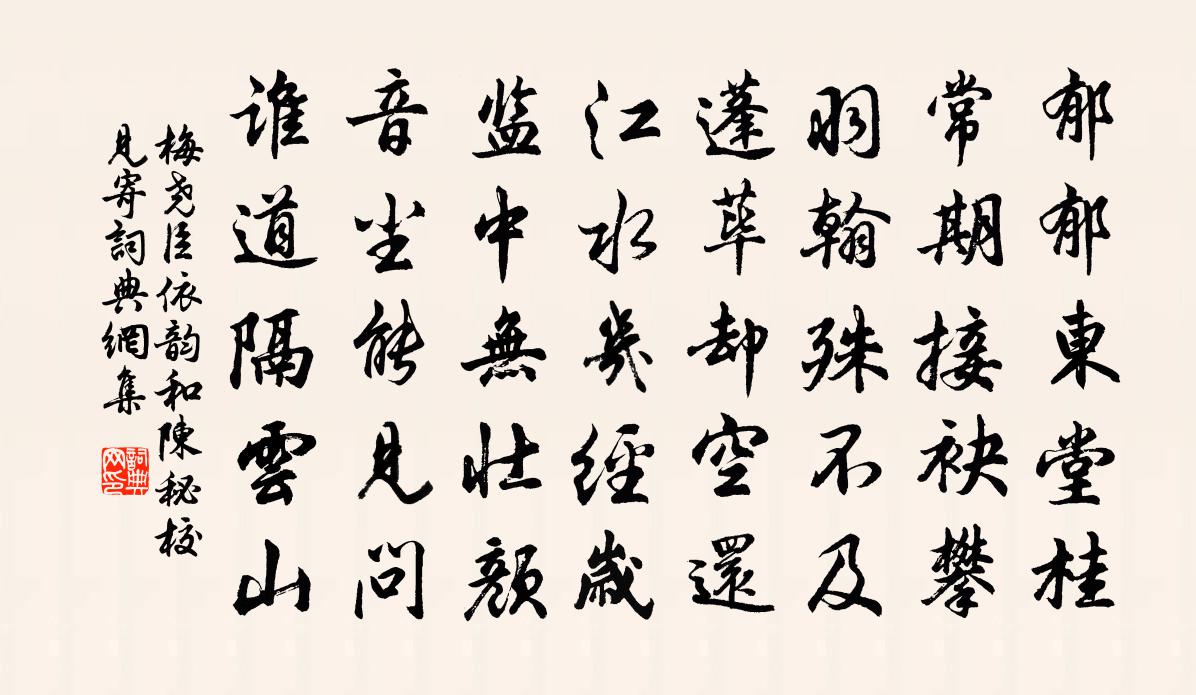 郁郁東堂桂
常期接袂攀
羽翰殊不及
蓬蓽却空還
江水幾經歲
监中無壮顏
音尘能見問
谁道隔雲山
梅尧臣依韵和陳秘校
見寄詞典網集
詞典网印